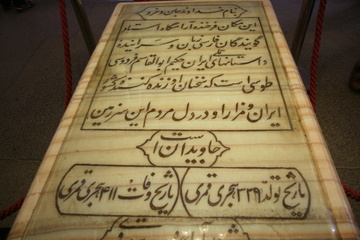 بنام خداوند جان و خرد
این مکان فرخنده آرامگاه استاد
گویندگان فارسی زبان و سراینده
داستانهای ملی ایران حکیم ابوالقاسم فردوسی
طوسی است که سخنان او زنده کننده کشور
ایران و مزار او در دل مردم این سرزمین
جاویدان است
تاریخ تولد ۳۲۹ هجری قمری
تاریخ وفات ۴۱۱ هجری قمری